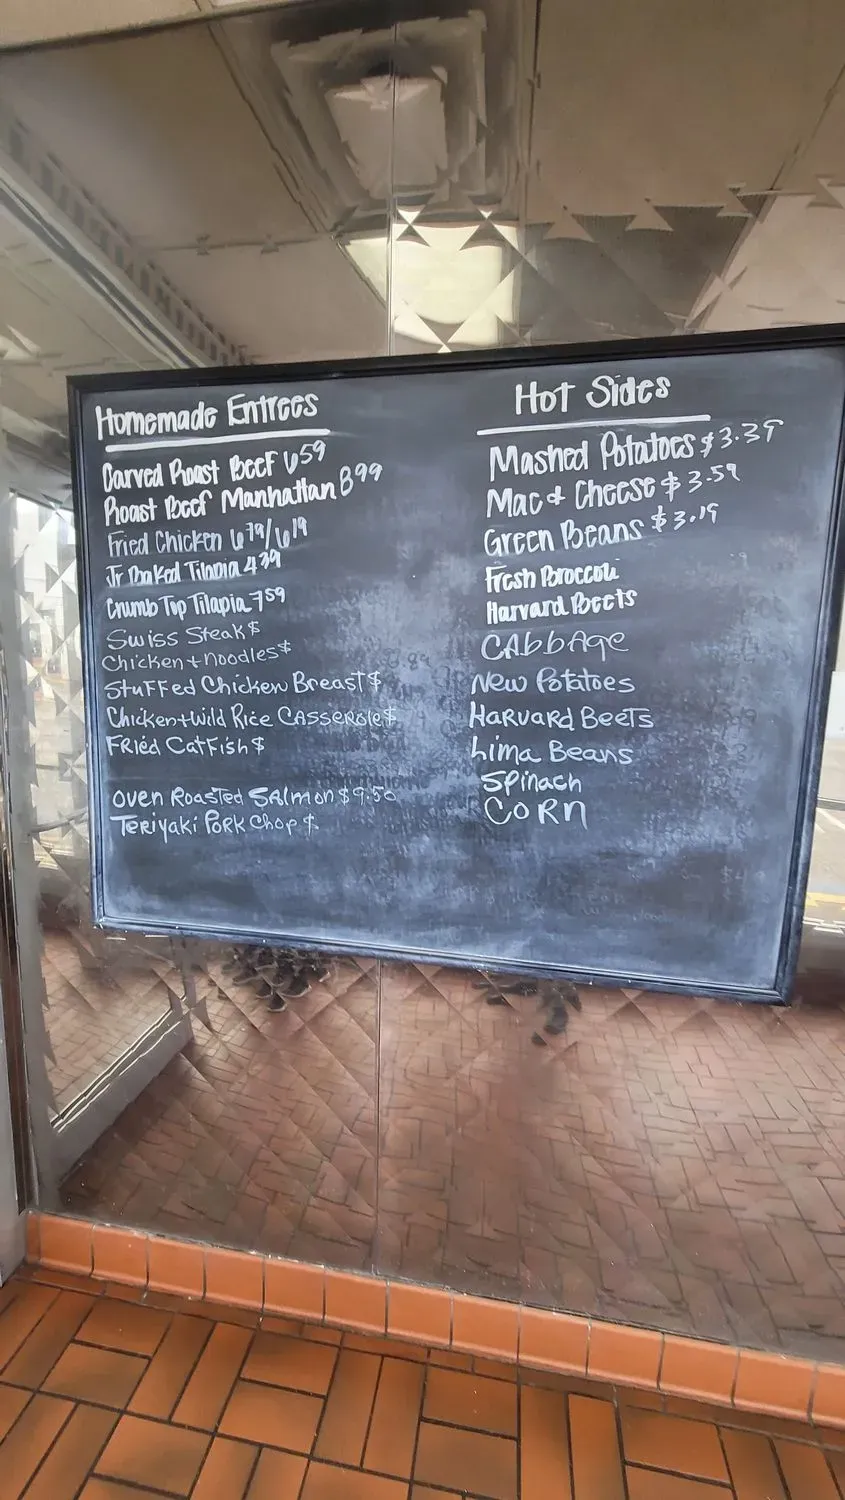 Homemade Entrees
Carved Roast Beef 6 59
Roast Beef Manhattan 8 99
Fried Chicken 6 79/6 19
Jr Baked Tilapia 4 39
Crumb Top Tilapia 7 59
Swiss Steak $
Chicken + Noodles $
Stuffed Chicken Breast $
Chicken + Wild Rice Casserole $
Fried Catfish $
Oven Roasted Salmon $9.50
Teriyaki Pork Chop $
Hot Sides
Mashed Potatoes $3.39
Mac & Cheese $3.59
Green Beans $3.19
Fresh Broccoli
Harvard Beets
Cabbage
New Potatoes
Harvard Beets
Lima Beans
Spinach
Corn